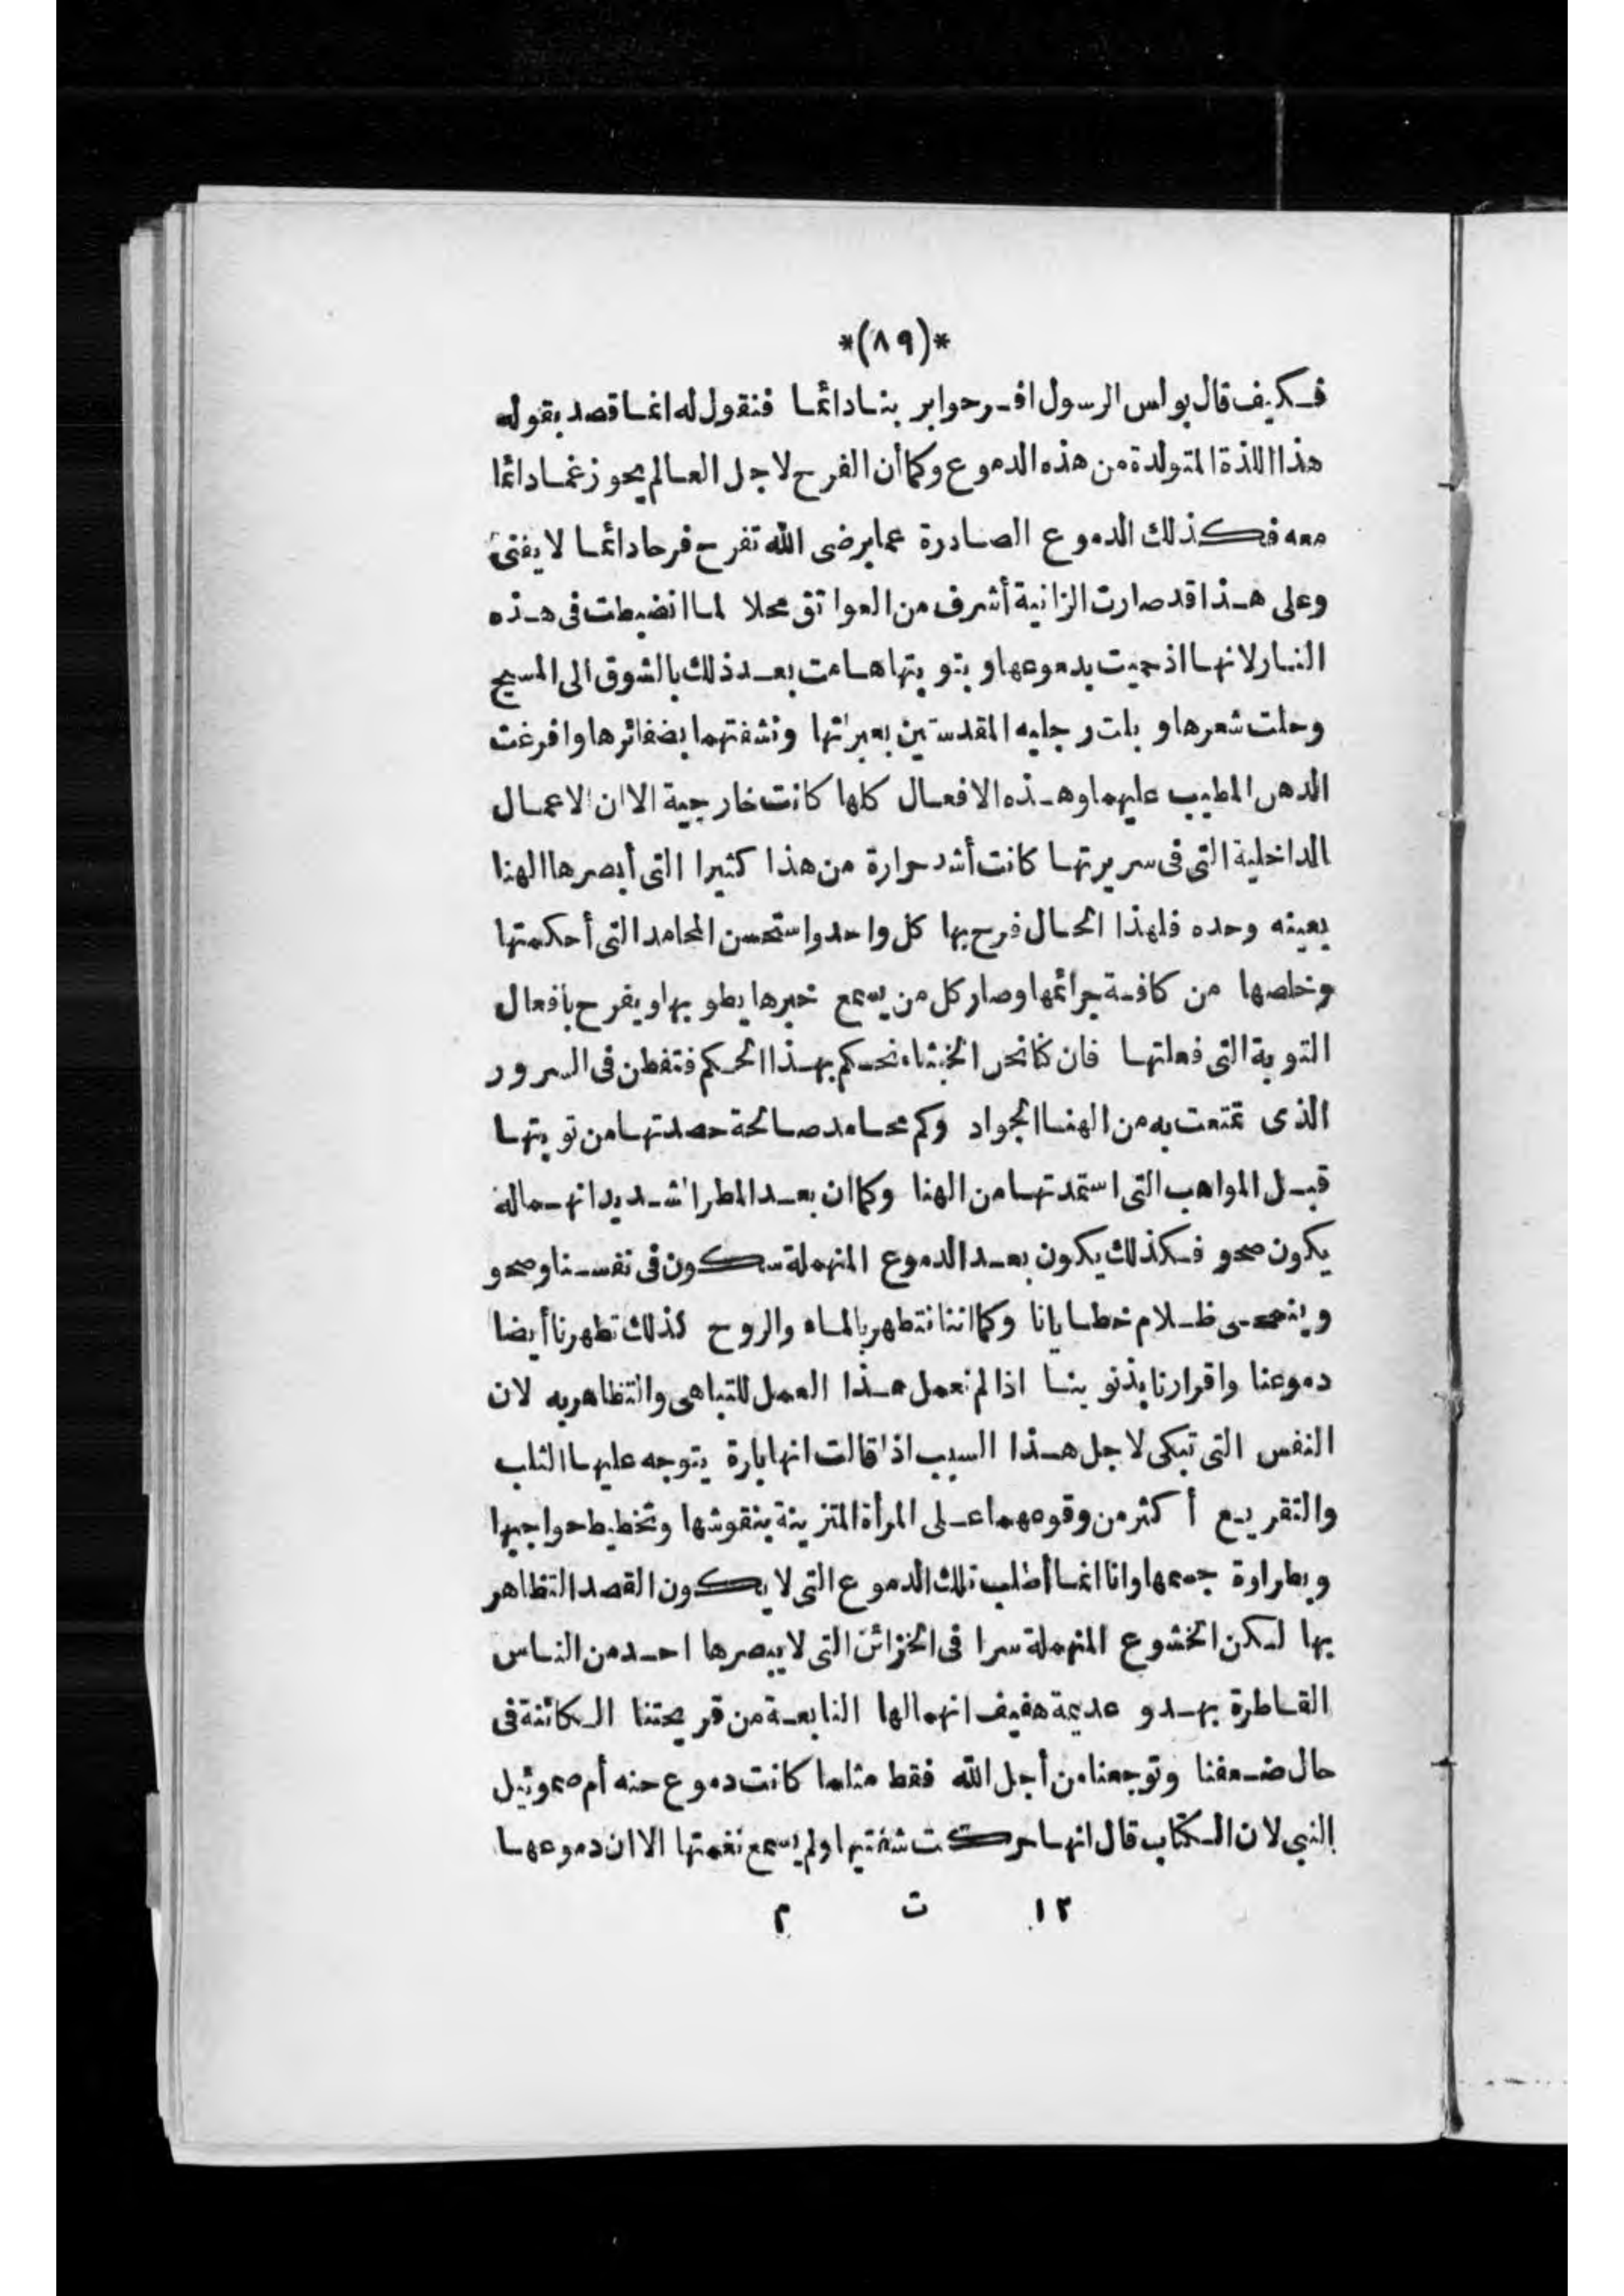 *(٨٩)*
فكيف قال بولس الرسول افرحوا بربنا دائما فنقول له انما قصد بقوله
هذا اللذة المتولدة من هذه الدموع وكما أن الفرح لاجل العالم يحوز غما دائما
معه فكذلك الدموع الصادرة عما يرضى الله تفرح فرحا دائما لا يفنى
وعلى هذا قد صارت الزانية أشرف من العواتق محلا لما انضبطت فى هذه
النار لانها اذ حميت بدموعها وبتوبتها هامت بعد ذلك بالشوق الى المسيح
وحلت شعرها وبلت رجليه المقدستين بعبراتها ونشفتهما بضفائرها وافرغت
الدهن المطيب عليهما وهذه الافعال كلها كانت خارجية الا ان الاعمال
الداخلية التى فى سريرتها كانت أشد حرارة من هذا كثيرا التى أبصرها الهنا
بعينه وحده فلهذا الحال فرح بها كل واحد واستحسن المحامد التى أحكمتها
وخلصها من كافة جرائمها وصار كل من يسمع خبرها يطوبها ويفرح بافعال
التوبة التى فعلتها فان كنا نحن الخبثاء نحكم بهذا الحكم فتفطن فى السرور
الذى تمتعت به من الهنا الجواد وكم محامد صالحة حصدتها من توبتها
قبل المواهب التى استمدتها من الهنا وكما ان بعد المطر الشديد انهماله
يكون صحو فكذلك يكون بعد الدموع المنهملة سكون فى نفسنا وصحو
وينمحى ظلام خطايانا وكما اننا نتطهر بالماء والروح كذلك تطهرنا أيضا
دموعنا واقرارنا بذنوبنا اذا لم نعمل هذا العمل للتباهى والتظاهر به لان
النفس التى تبكى لاجل هذا السبب اذا قالت انها بارة يتوجه عليها الثلب
والتقريع أكثر من وقوعهما على المرأة المتزينة بنقوشها وتخطيط حواجبها
وبطراوة جسمها وانا انما أطلب تلك الدموع التى لا يكون القصد التظاهر
بها لكن الخشوع المنهملة سرا فى الخزائن التى لا يبصرها احد من الناس
القاطرة بهدو عديمة هفيف انهمالها النابعة من قريحتنا الكائنة فى
حال ضعفنا وتوجعنا من أجل الله فقط مثلما كانت دموع حنه أم صموئيل
النبى لان الكتاب قال انها حركت شفتيها ولم يسمع نغمتها الا ان دموعها
١٢ ت م